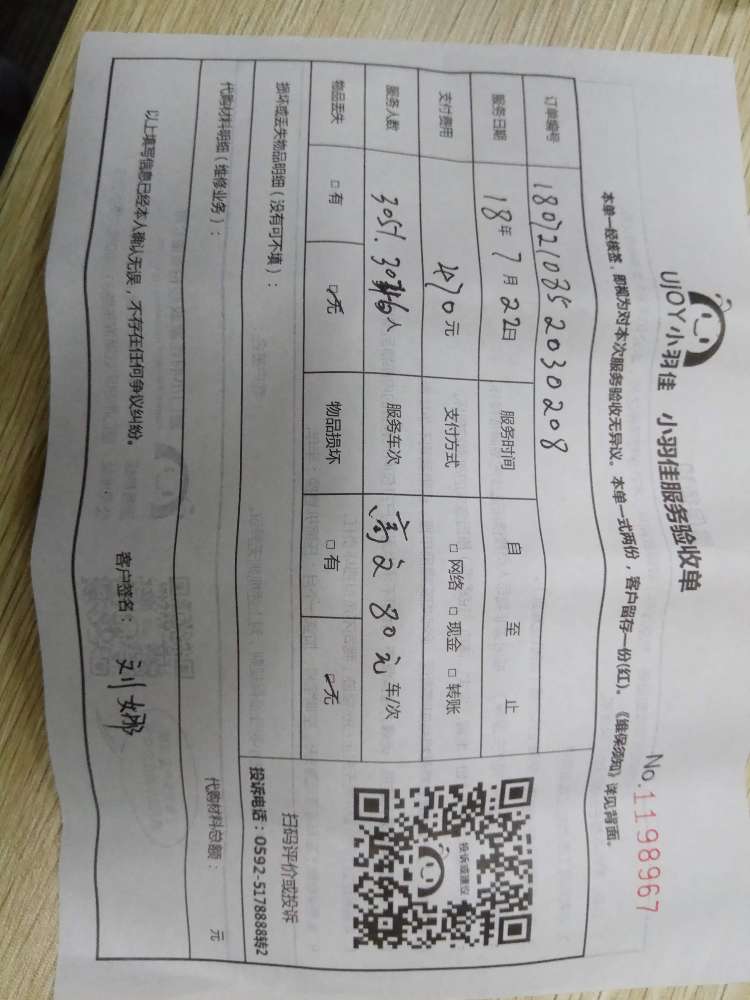 UJOY小羽佳 小羽佳服务验收单
No.1198967
本单一经核签，即视为对本次服务验收无异议。本单一式两份，客户留存一份(红)。《维保须知》详见背面。
订单编号 1807210852030208
服务日期 18年7月22日 服务时间 自 至 止
支付费用 470元 支付方式 □网络 □现金 □转账
服务人数 3051.3046人 服务车次 高文 80元 车/次
物品丢失 □有 ☑无 物品损坏 □有 ☑无
损坏或丢失物品明细（没有可不填）：
投诉或建议
扫码评价或投诉
投诉电话：0592-5178888转2
代购材料明细（维修业务）： 代购材料总额： 元
以上填写信息已经本人确认无误，不存在任何争议纠纷。 客户签名：刘娜